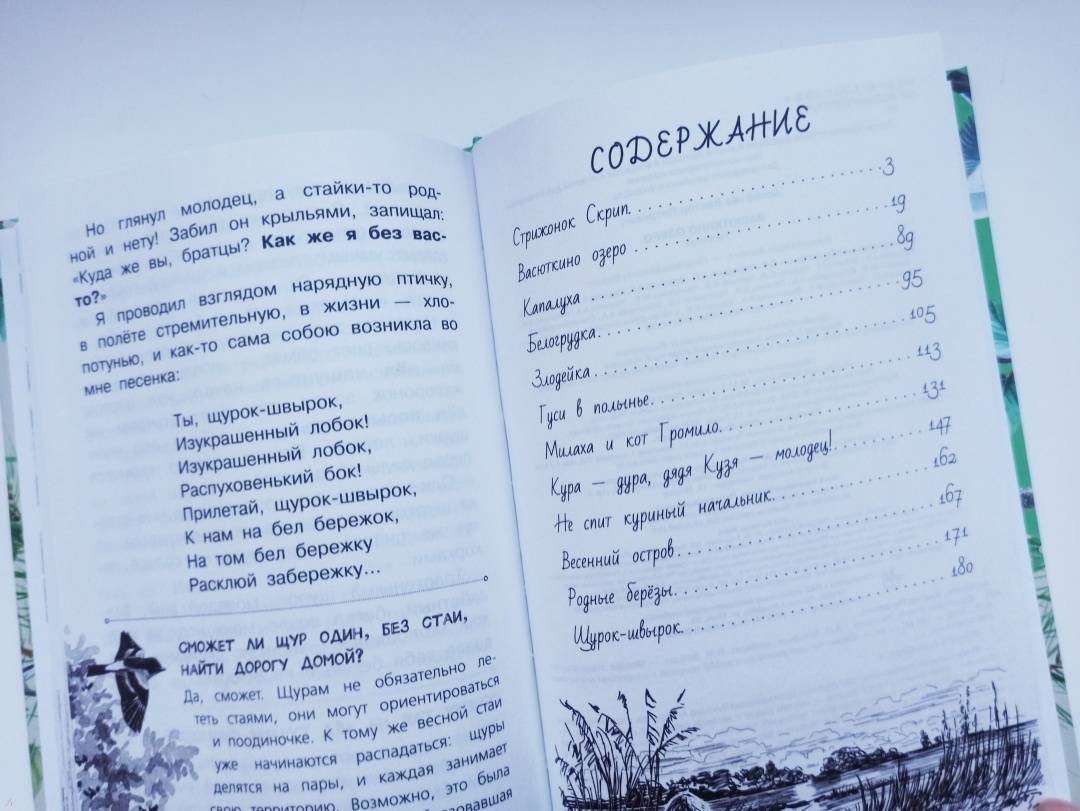 Но глянул молодец, а стайки-то род-
ной и нету! Забил он крыльями, запищал:
«Куда же вы, братцы? Как же я без вас-
то?»
Я проводил взглядом нарядную птичку,
в полёте стремительную, в жизни — хло-
потунью, и как-то сама собою возникла во
мне песенка:
Ты, щурок-швырок,
Изукрашенный лобок!
Изукрашенный лобок,
Распуховенький бок!
Прилетай, щурок-швырок,
К нам на бел бережок,
На том бел бережку
Расклюй забережку...
СМОЖЕТ ЛИ ЩУР ОДИН, БЕЗ СТАИ,
НАЙТИ ДОРОГУ ДОМОЙ?
Да, сможет. Щурам не обязательно ле-
теть стаями, они могут ориентироваться
и поодиночке. К тому же весной стаи
уже начинаются распадаться: щуры
делятся на пары, и каждая занимает
свою территорию. Возможно, это была
СОДЕРЖАНИЕ
Стрижонок Скрип. 3
Васюткино озеро 19
Капалуха 89
Белогрудка. 95
Злодейка 105
Гуси в полынье. 113
Милаха и кот Громило. 131
Кура — дура, дядя Кузя — молодец! 147
Не спит куриный начальник. 162
Весенний остров. 167
Родные берёзы. 171
Щурок-швырок. 180